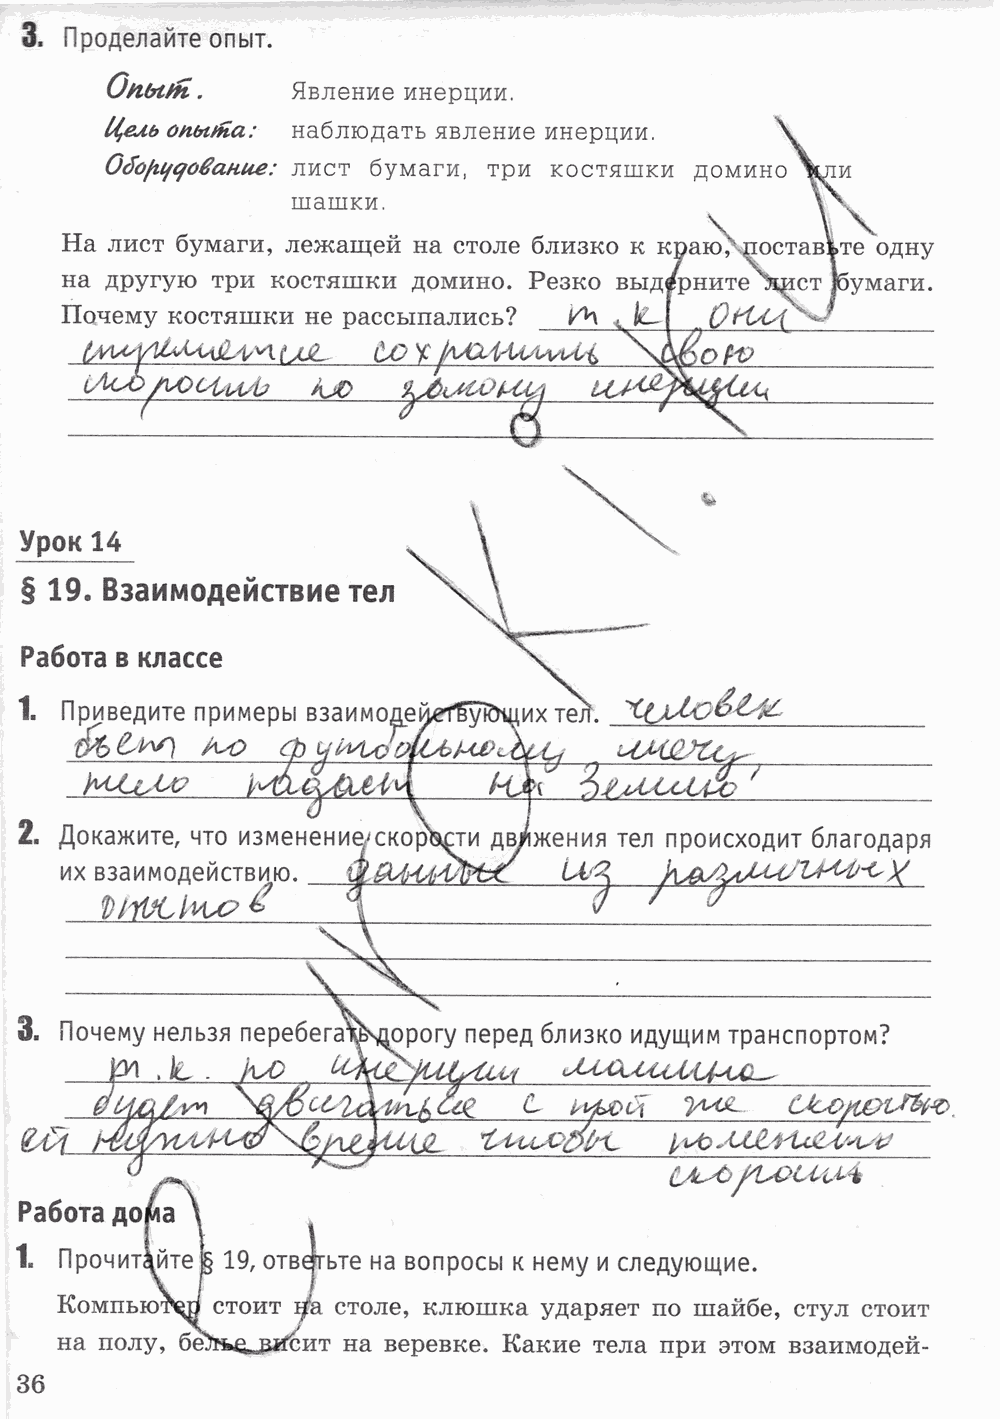 3. Проделайте опыт.
Опыт. Явление инерции.
Цель опыта: наблюдать явление инерции.
Оборудование: лист бумаги, три костяшки домино или
шашки.
На лист бумаги, лежащей на столе близко к краю, поставьте одну
на другую три костяшки домино. Резко выдерните лист бумаги.
Почему костяшки не рассыпались? т.к. они
стремятся сохранить свою
скорость по закону инерции
Урок 14
§ 19. Взаимодействие тел
Работа в классе
1. Приведите примеры взаимодействующих тел. человек
бьет по футбольному мячу,
тело падает на Землю
2. Докажите, что изменение скорости движения тел происходит благодаря
их взаимодействию. данные из различных
опытов
3. Почему нельзя перебегать дорогу перед близко идущим транспортом?
т.к. по инерции машина
будет двигаться с той же скоростью.
ей нужно время чтобы поменять
скорость
Работа дома
1. Прочитайте § 19, ответьте на вопросы к нему и следующие.
Компьютер стоит на столе, клюшка ударяет по шайбе, стул стоит
на полу, белье висит на веревке. Какие тела при этом взаимодей-
36